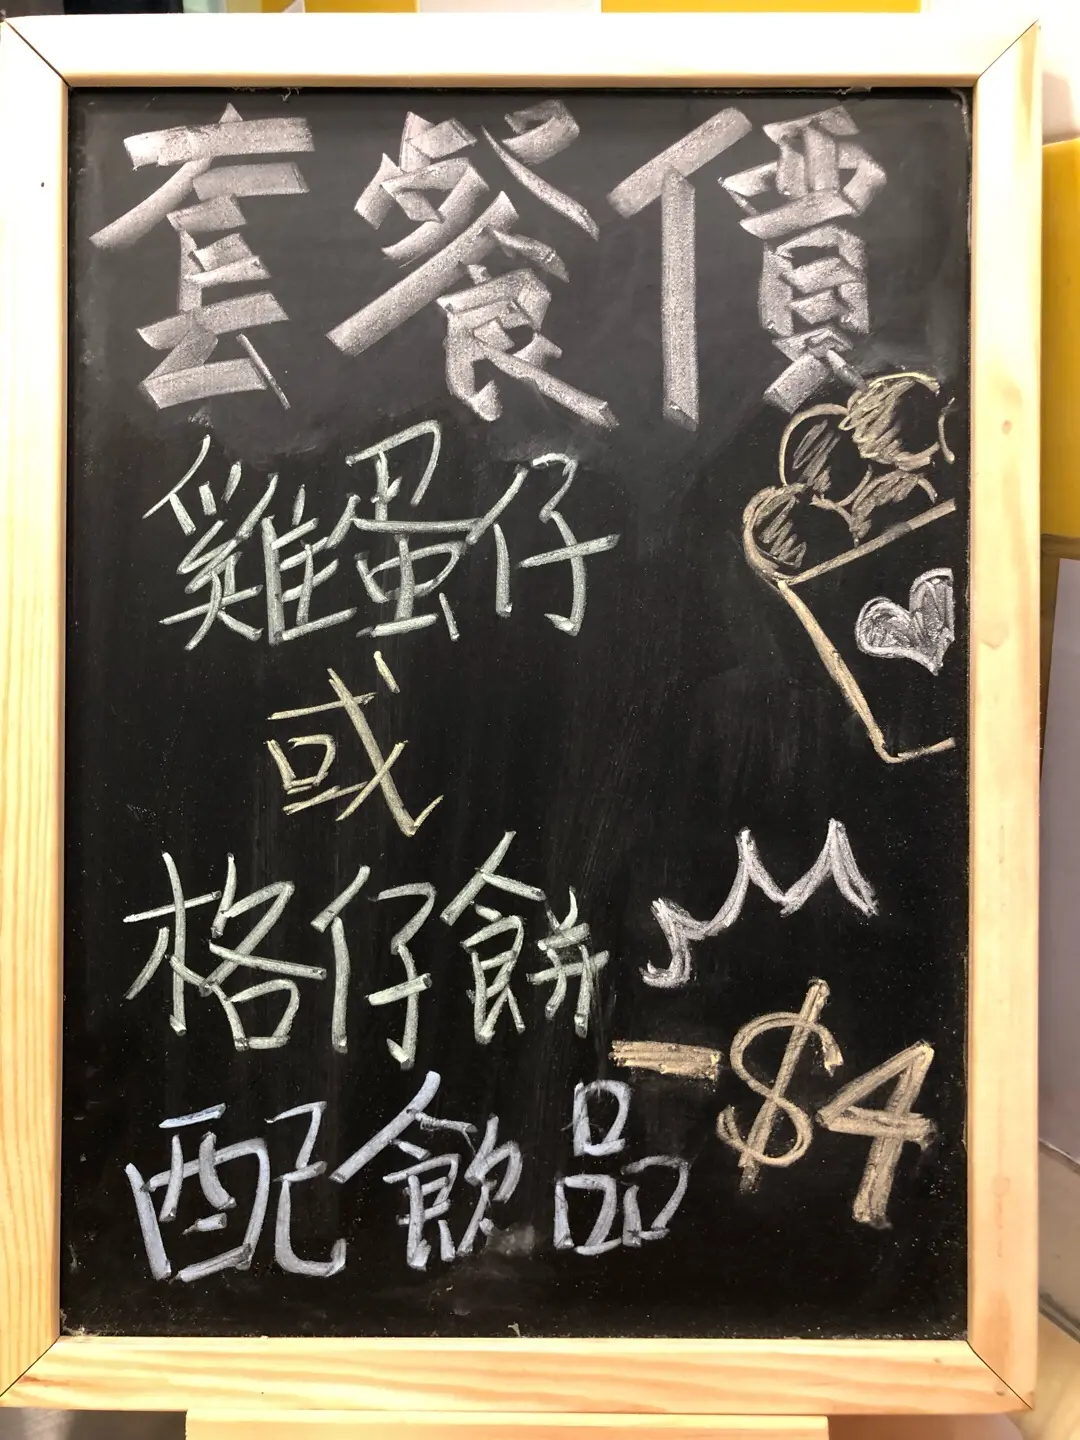 套餐價
雞蛋仔
或
格仔餅
配飲品
-$4